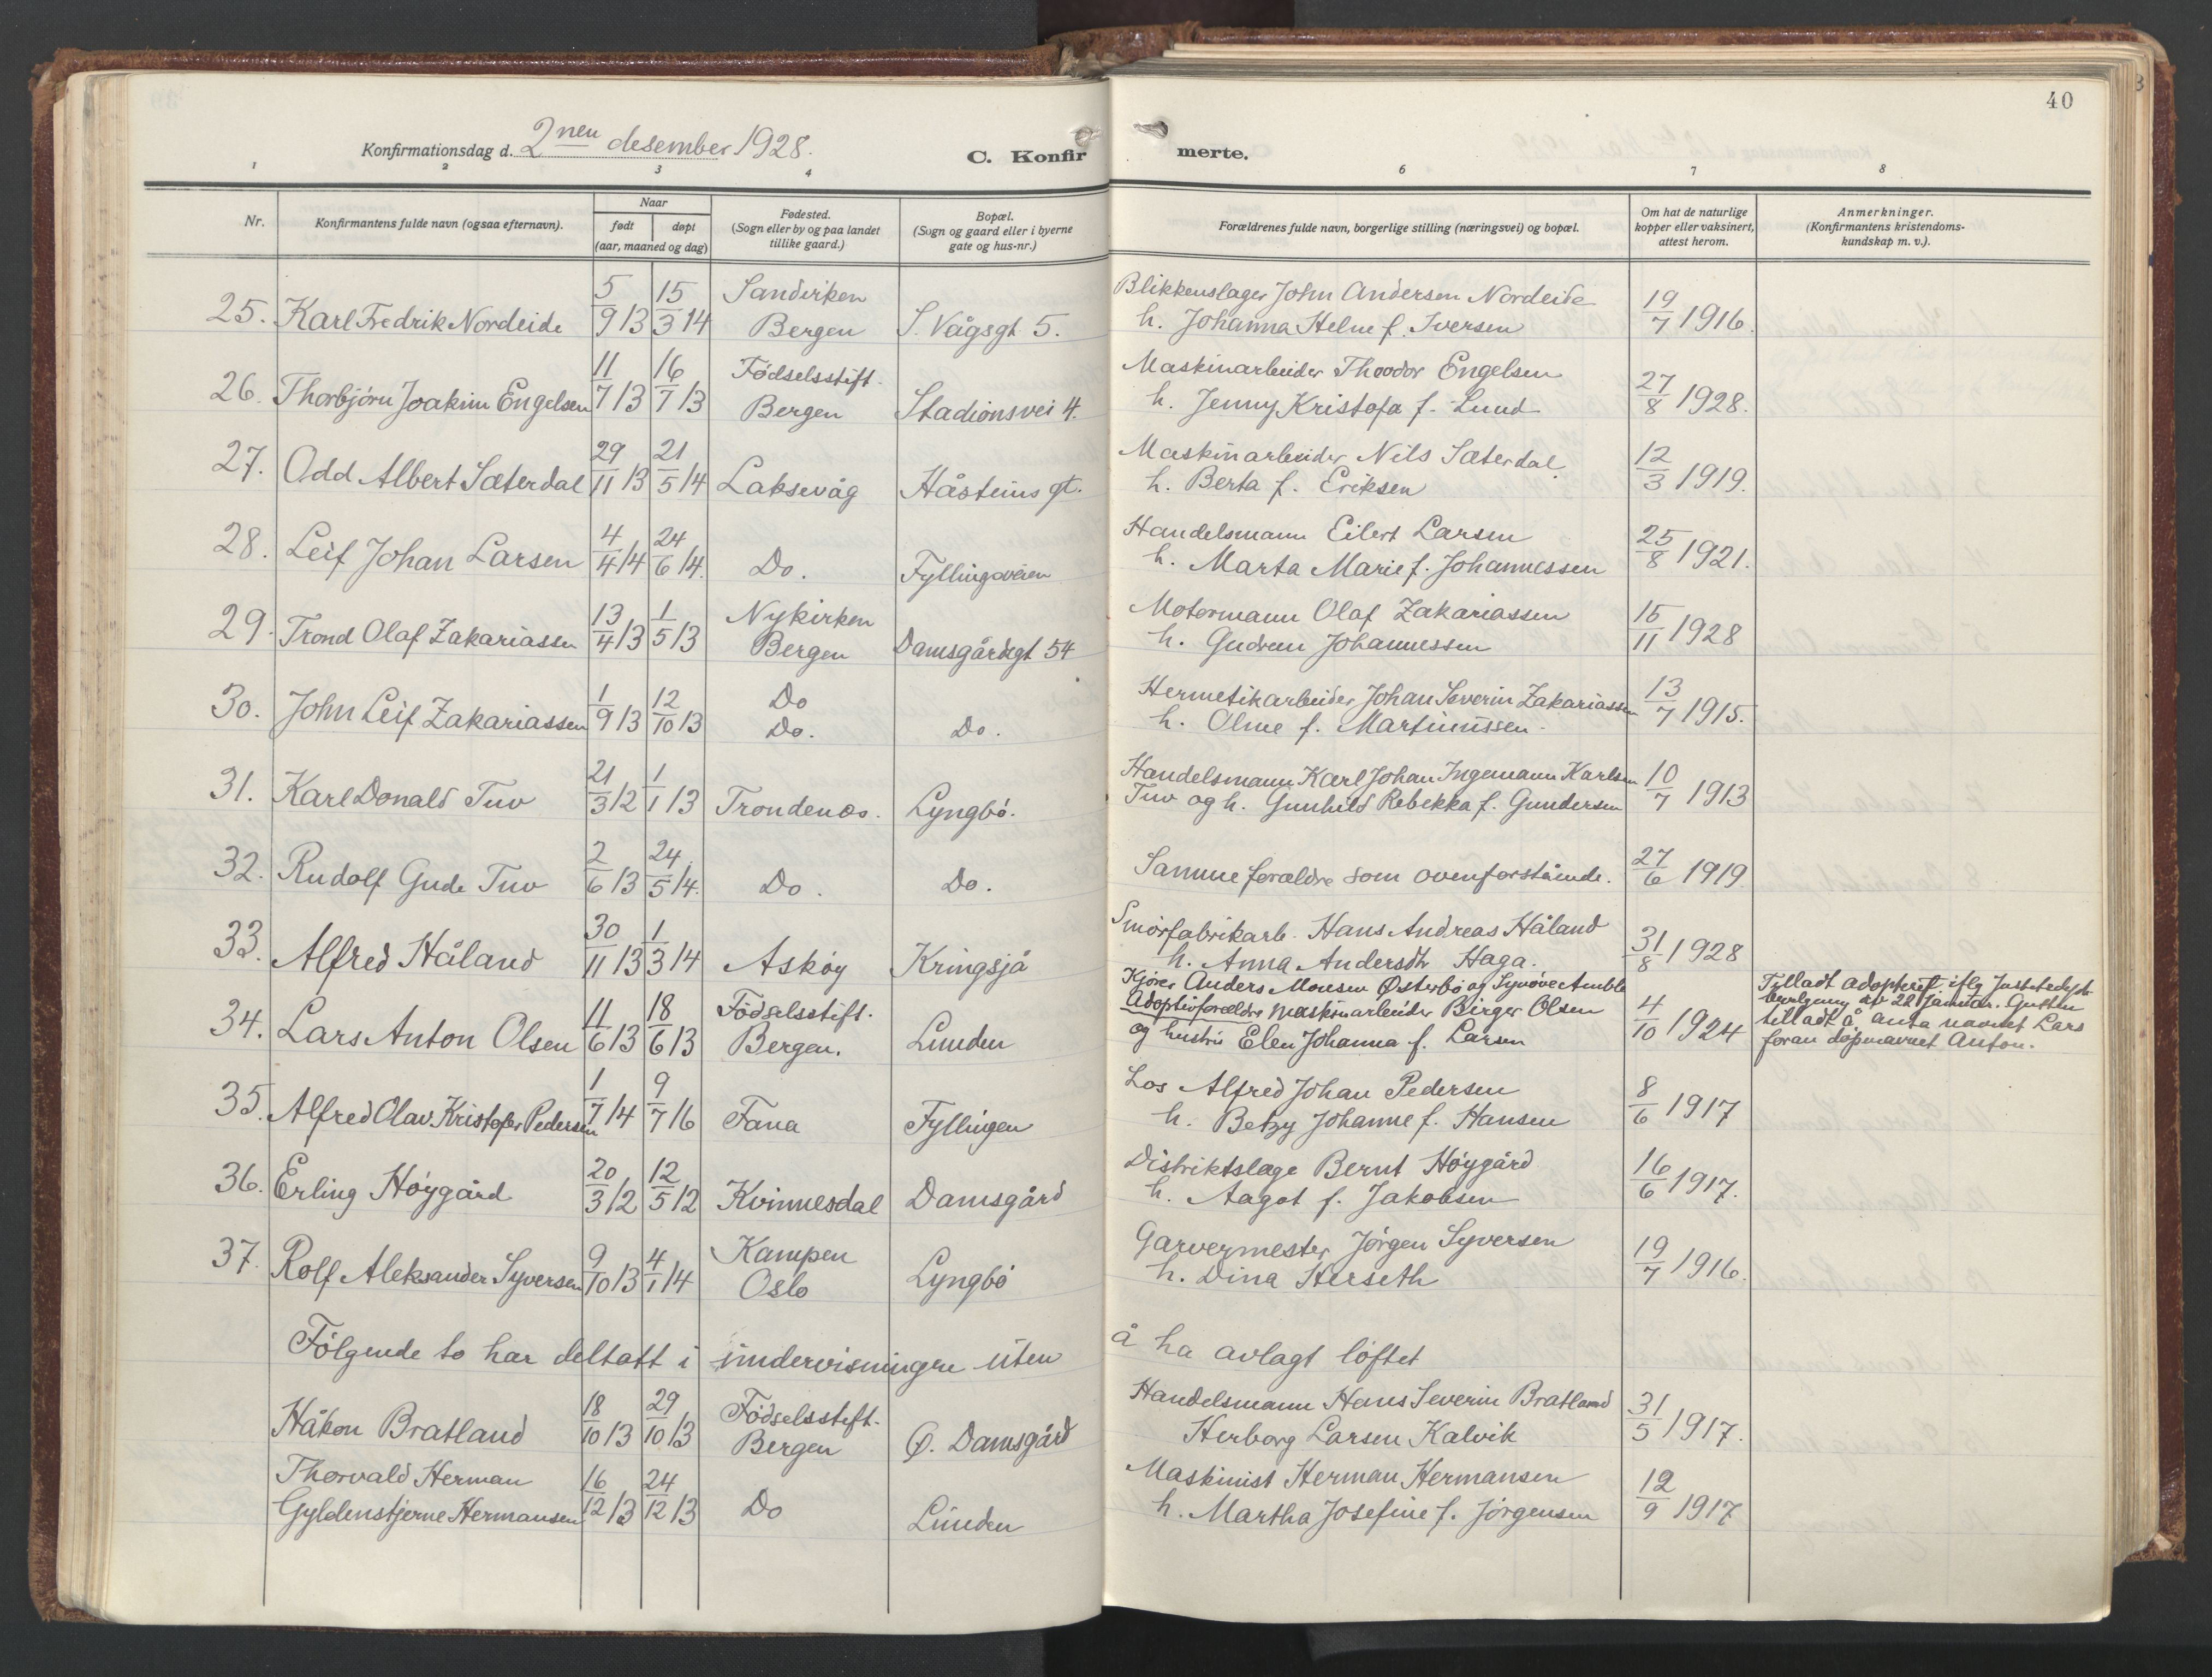 40
Konfirmationsdag d. 2nen desember 1928.
C. Konfirmerte.
1 2 3 4 6 7 8
Nr.
Konfirmantens fulde navn (ogsaa efternavn).
Naar
født
døpt
(aar, maaned og dag)
Fødested.
(Sogn eller by og paa landet
tillike gaard.)
Bopæl.
(Sogn og gaard eller i byerne
gate og hus-nr.)
Forældrenes fulde navn, borgerlige stilling (næringsvei) og bopæl.
Om hat de naturlige
kopper eller vaksinert,
attest herom.
Anmerkninger.
(Konfirmantens kristendoms-
kundskap m. v.).
25. Karl Fredrik Nordeide 5/9 13 15/3 14 Sandviken
Bergen S. Vågsgt 5. Blikkenslager John Andersen Nordeide
h. Johanna Helne f. Iversen 19/7 1916.
26. Thorbjørn Joakim Engelsen 11/7 13 16/7 13 Fødselsstift.
Bergen Stadionsvei 4. Maskinarbeider Theodor Engelsen
h. Jenny Kristofa f. Lund 27/8 1928.
27. Odd Albert Sæterdal 29/11 13 21/5 14 Laksevåg Håsteins gt. Maskinarbeider Nils Sæterdal
h. Berta f. Eriksen 12/3 1919.
28. Leif Johan Larsen 4/4 14 24/6 14. Do. Fyllingsveien Handelsmann Eilert Larsen
h. Marta Marie f. Johannessen 25/8 1921.
29. Trond Olaf Zakariassen 13/4 13 1/5 13 Nykirken
Bergen Damsgårdsgt 54 Motormann Olaf Zakariassen
h. Gudrun Johannessen 15/11 1928
30. John Leif Zakariassen 1/9 13 12/10 13 Do
Do. Do. Hermetikarbeider Johan Severin Zakariassen
h. Oline f. Martinussen. 13/7 1915.
31. Karl Donald Tuv 21/3 12 1/1 13 Trondenes. Lyngbø. Handelsmann Karl Johan Ingemann Karlsen
Tuv og h. Gunhild Rebekka f. Gundersen 10/7 1913
32. Rudolf Gude Tuv 2/6 13 24/5 14. Do. Do. Samme forældre som ovenforstående. 27/6 1919
33. Alfred Håland 30/11 13 1/3 14 Askøy Kringsjå Smørfabrikarb. Hans Andreas Håland
h. Anna Andersdtr Haga. 31/8 1928
34. Lars Anton Olsen 11/6 13 18/6 13 Fødselsstift.
Bergen. Lunden Kjører Anders Monsen Østerbø og Synøve Amble
Adoptivforældre maskinarbeider Birger Olsen
og hustru Elen Johanna f. Larsen 4/10 1924 Tilladt adopteret iflg Justisdepts
bevilgning av 22 Gutten
tilladt å anta navnet Lars
foran døpnavnet Anton.
35. Alfred Olav Kristofer Pedersen 1/7 14 9/7 16 Fana Fyllingen Los Alfred Johan Pedersen
h. Betzy Johanne f. Hansen 8/6 1917
36. Erling Høygård 20/3 12 12/5 12 Kvinnesdal Damsgård Distriktslæge Bernt Høygård
h. Aagot f. Jakobsen 16/6 1917.
37. Rolf Aleksander Syversen 9/10 13 4/1 14 Kampen
Oslo Lyngbø Garvermester Jørgen Syversen
h. Dina Herseth 19/7 1916.
Følgende to har deltatt i undervisningen uten å ha avlagt løftet
Håkon Bratland 18/10 13 29/10 13 Fødselsstift.
Bergen Ø. Damsgård Handelsmann Hans Severin Bratland
Herborg Larsen Kalvik 31/5 1917.
Thorvald Herman
Gyldenstjerne Hermansen 16/12 13 24/12 13 Do Lunden Maskinist Herman Hermansen
h. Martha Josefine f. Jørgensen 12/9 1917